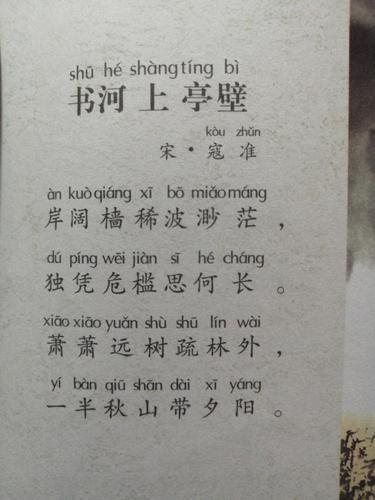 shū hé shàng tíng bì
书河上亭壁
kòu zhǔn
宋·寇准
àn kuò qiáng xī bō miǎo máng
岸阔樯稀波渺茫，
dú píng wēi jiàn sī hé cháng
独凭危槛思何长。
xiāo xiāo yuǎn shù shū lín wài
萧萧远树疏林外，
yí bàn qiū shān dài xī yáng
一半秋山带夕阳。